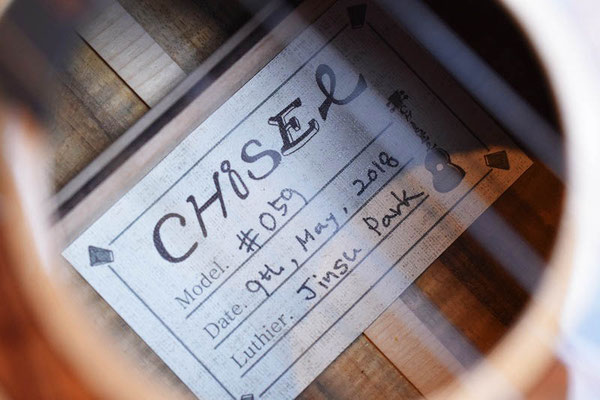 CHiSEL
Model. #059
Date. 9th, May, 2018
Luthier. Jinsu Park